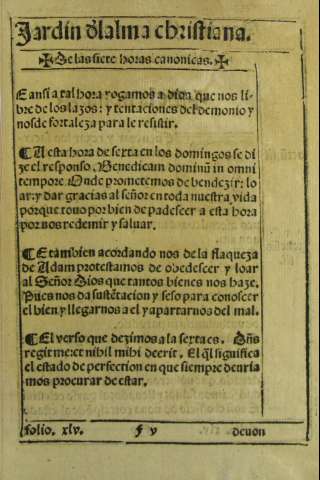 Jardin dl alma christiana.
✠De las siete horas canonicas.✠
E ansi a tal hora rogamos a dios que nos li-
bre de los lazos: y tentaciones del demonio y
nos de fortaleza para le resistir.
¶ A esta hora de sexta en los domingos se di
ze el responso. Benedicam dominũ in omni
tempore. Onde prometemos de bendezir: lo
ar: y dar gracias al señor en toda nuestra vida
porque touo por bien de padescer a esta hora
por nos redemir y saluar.
¶ E tambien acordando nos de la flaqueza
de Adam protestamos de obedescer y loar
al Señor Dios que tantos bienes nos haze.
Pues nos da sustẽtacion y seso para conoscer
el bien y llegarnos a el y apartarnos del mal.
¶ El verso que dezimos a la sexta es. Dñs
regit me et nihil mihi deerit. El q̃l significa
el estado de perfection en que siempre deuria
mos procurar de estar.
folio. xlv. f v deuon